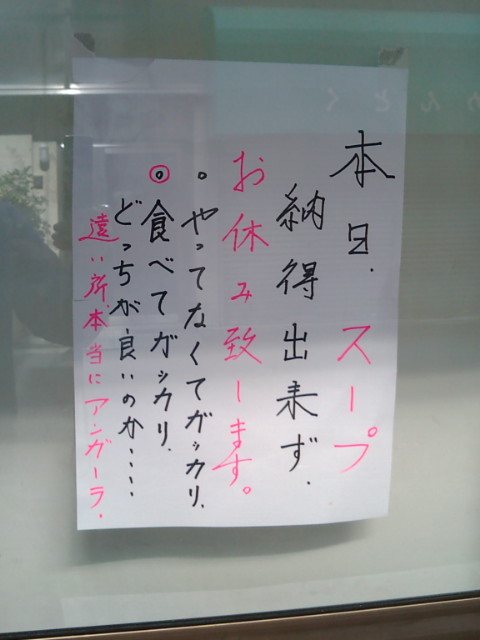 本日、スープ
納得出来ず、
お休み致します。
。やってなくてガッカリ、
◎食べてガッカリ、
どっちが良いのか・・・・
遠い所、本当にアンガーラ、